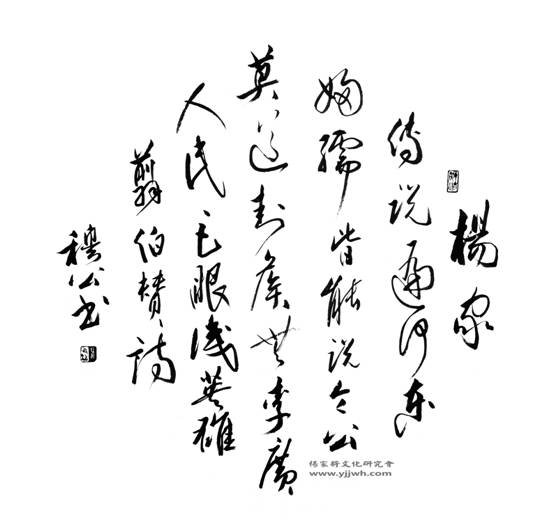 楊家
傳說遍河東
婦孺皆能說令公
莫道封侯無李廣
人民巨眼識英雄
翦伯贊詩
穆公书
楊家將文化研究會
www.yjjwh.com